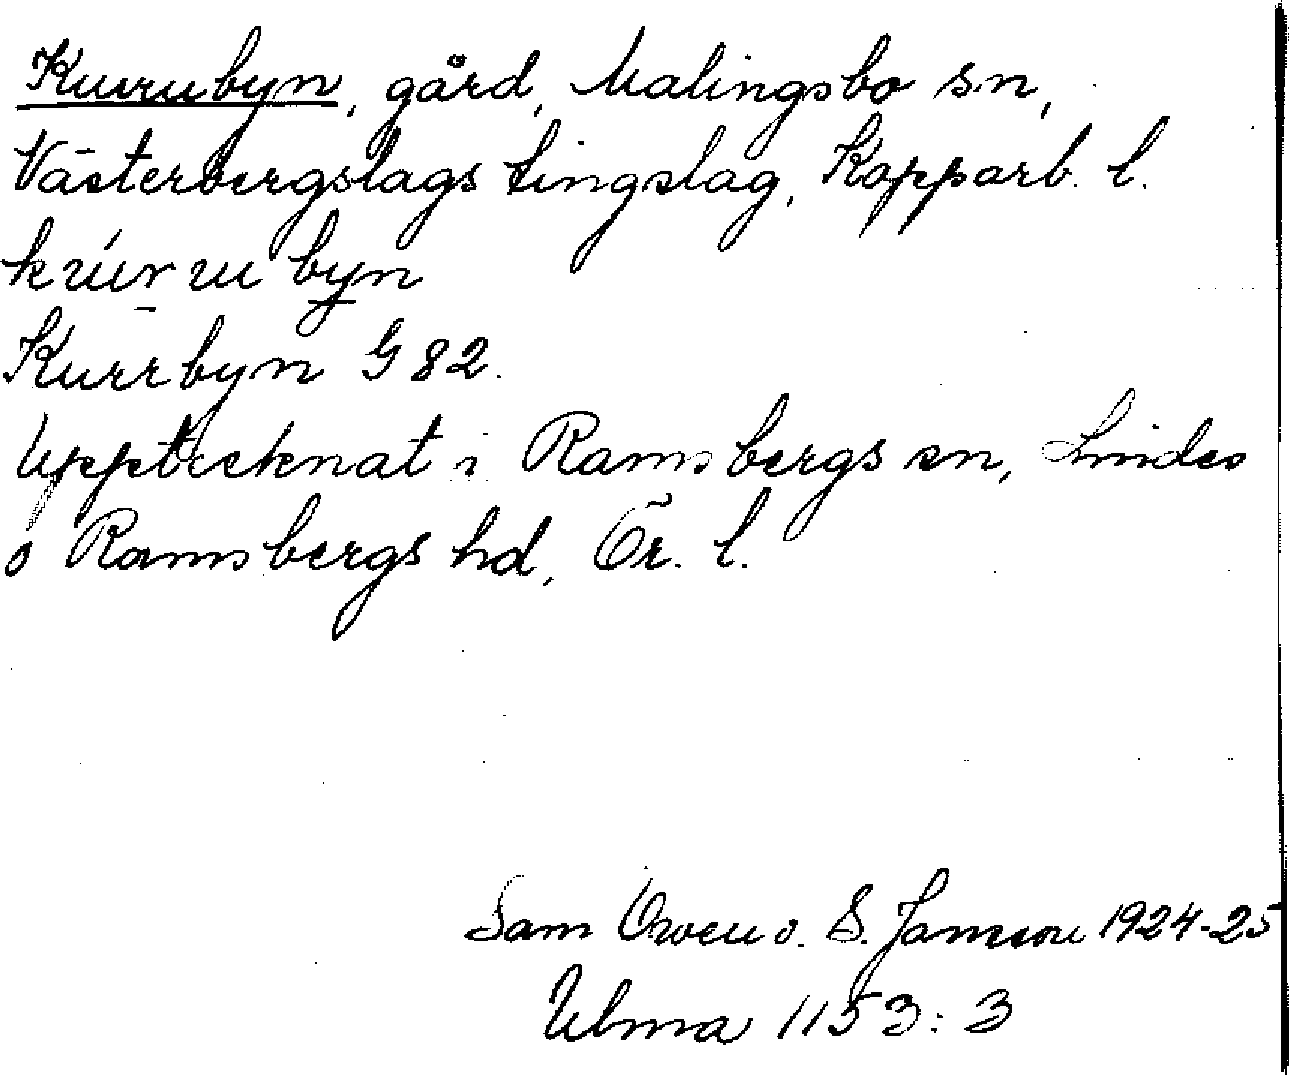 Kurrubyn, gård, Malingsbo sn,
Västerbergslags tingslag, Kopparb. l.
Kurrbyn G 82.
Upptecknat i Ramsbergs sn, Lindes
o Ramsbergs hd, Ör. l.
Sam Owen o. S. Janson 1924-25
Ulma 1153:3